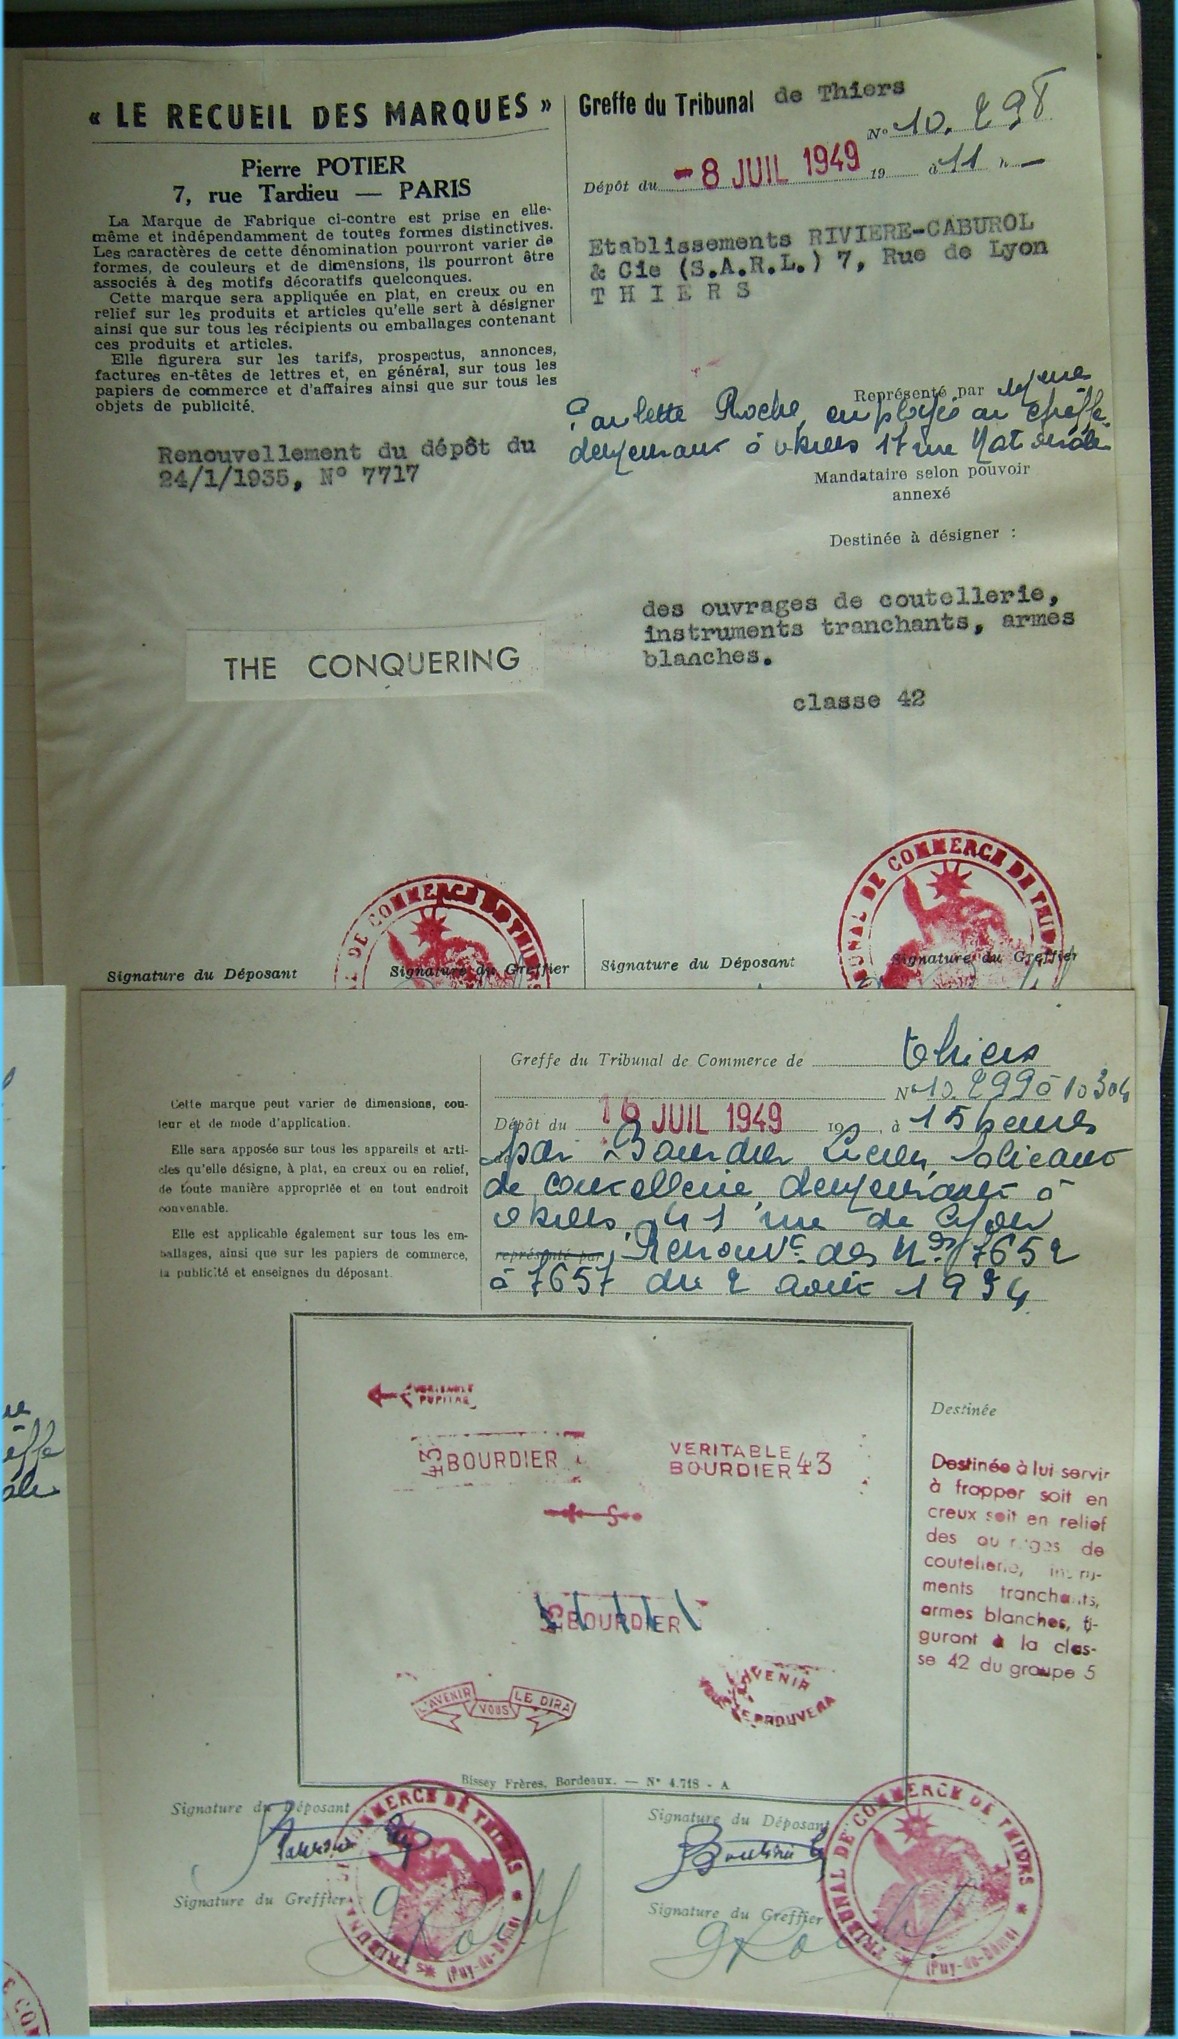 « LE RECUEIL DES MARQUES »
Pierre POTIER
7, rue Tardieu — PARIS
La Marque de Fabrique ci-contre est prise en elle-
même et indépendamment de toutes formes distinctives.
Les caractères de cette dénomination pourront varier de
formes, de couleurs et de dimensions, ils pourront être
associés à des motifs décoratifs quelconques.
Cette marque sera appliquée en plat, en creux ou en
relief sur les produits et articles qu'elle sert à désigner
ainsi que sur tous les récipients ou emballages contenant
ces produits et articles.
Elle figurera sur les tarifs, prospectus, annonces,
factures en-têtes de lettres et, en général, sur tous les
papiers de commerce et d'affaires ainsi que sur tous les
objets de publicité.
Renouvellement du dépôt du
24/1/1935, N° 7717
THE CONQUERING
Greffe du Tribunal de Thiers
N° 10.298
Dépôt du -8 JUIL 1949 19 à 11 h
Etablissements RIVIERE-CABUROL
& Cie (S.A.R.L.) 7, Rue de Lyon
THIERS
Représenté par
Paulette Roche, employée au greffe
demeurant à Thiers 17 rue Nationale
Mandataire selon pouvoir
annexé
Destinée à désigner :
des ouvrages de coutellerie,
instruments tranchants, armes
blanches.
classe 42
DE COMMERCE DE THIERS
TRIBUNAL DE COMMERCE DE THIERS
Signature du Déposant
Signature du Greffier
Signature du Déposant
Signature du Greffier
Cette marque peut varier de dimensions, cou-
leur et de mode d'application.
Elle sera apposée sur tous les appareils et arti-
cles qu'elle désigne, à plat, en creux ou en relief,
de toute manière appropriée et en tout endroit
convenable.
Elle est applicable également sur tous les em-
ballages, ainsi que sur les papiers de commerce,
la publicité et enseignes du déposant.
Greffe du Tribunal de Commerce de Thiers
N° 10.299 à 10304
Dépôt du 16 JUIL 1949 19 , à 15 heures
par Bourdier Lucien, fabricant
de coutellerie, demeurant à
Thiers 41 rue de Lyon
représenté par Renouvt des Nos 7652
à 7657 du 2 août 1934
VERITABLE
PUPITRE
43 BOURDIER
VERITABLE
BOURDIER 43
BOURDIER
L'AVENIR VOUS LE DIRA
L'AVENIR
VOUS LE PROUVERA
Destinée
Destinée à lui servir
à frapper soit en
creux soit en relief
des ouvrages de
coutellerie, instru-
ments tranchants,
armes blanches, fi-
gurant à la clas-
se 42 du groupe 5
Bissey Frères, Bordeaux. — N° 4.718 - A
Signature du Déposant
Signature du Greffier
TRIBUNAL DE COMMERCE DE THIERS
(Puy-de-Dôme)
Signature du Déposant
Signature du Greffier
TRIBUNAL DE COMMERCE DE THIERS
(Puy-de-Dôme)